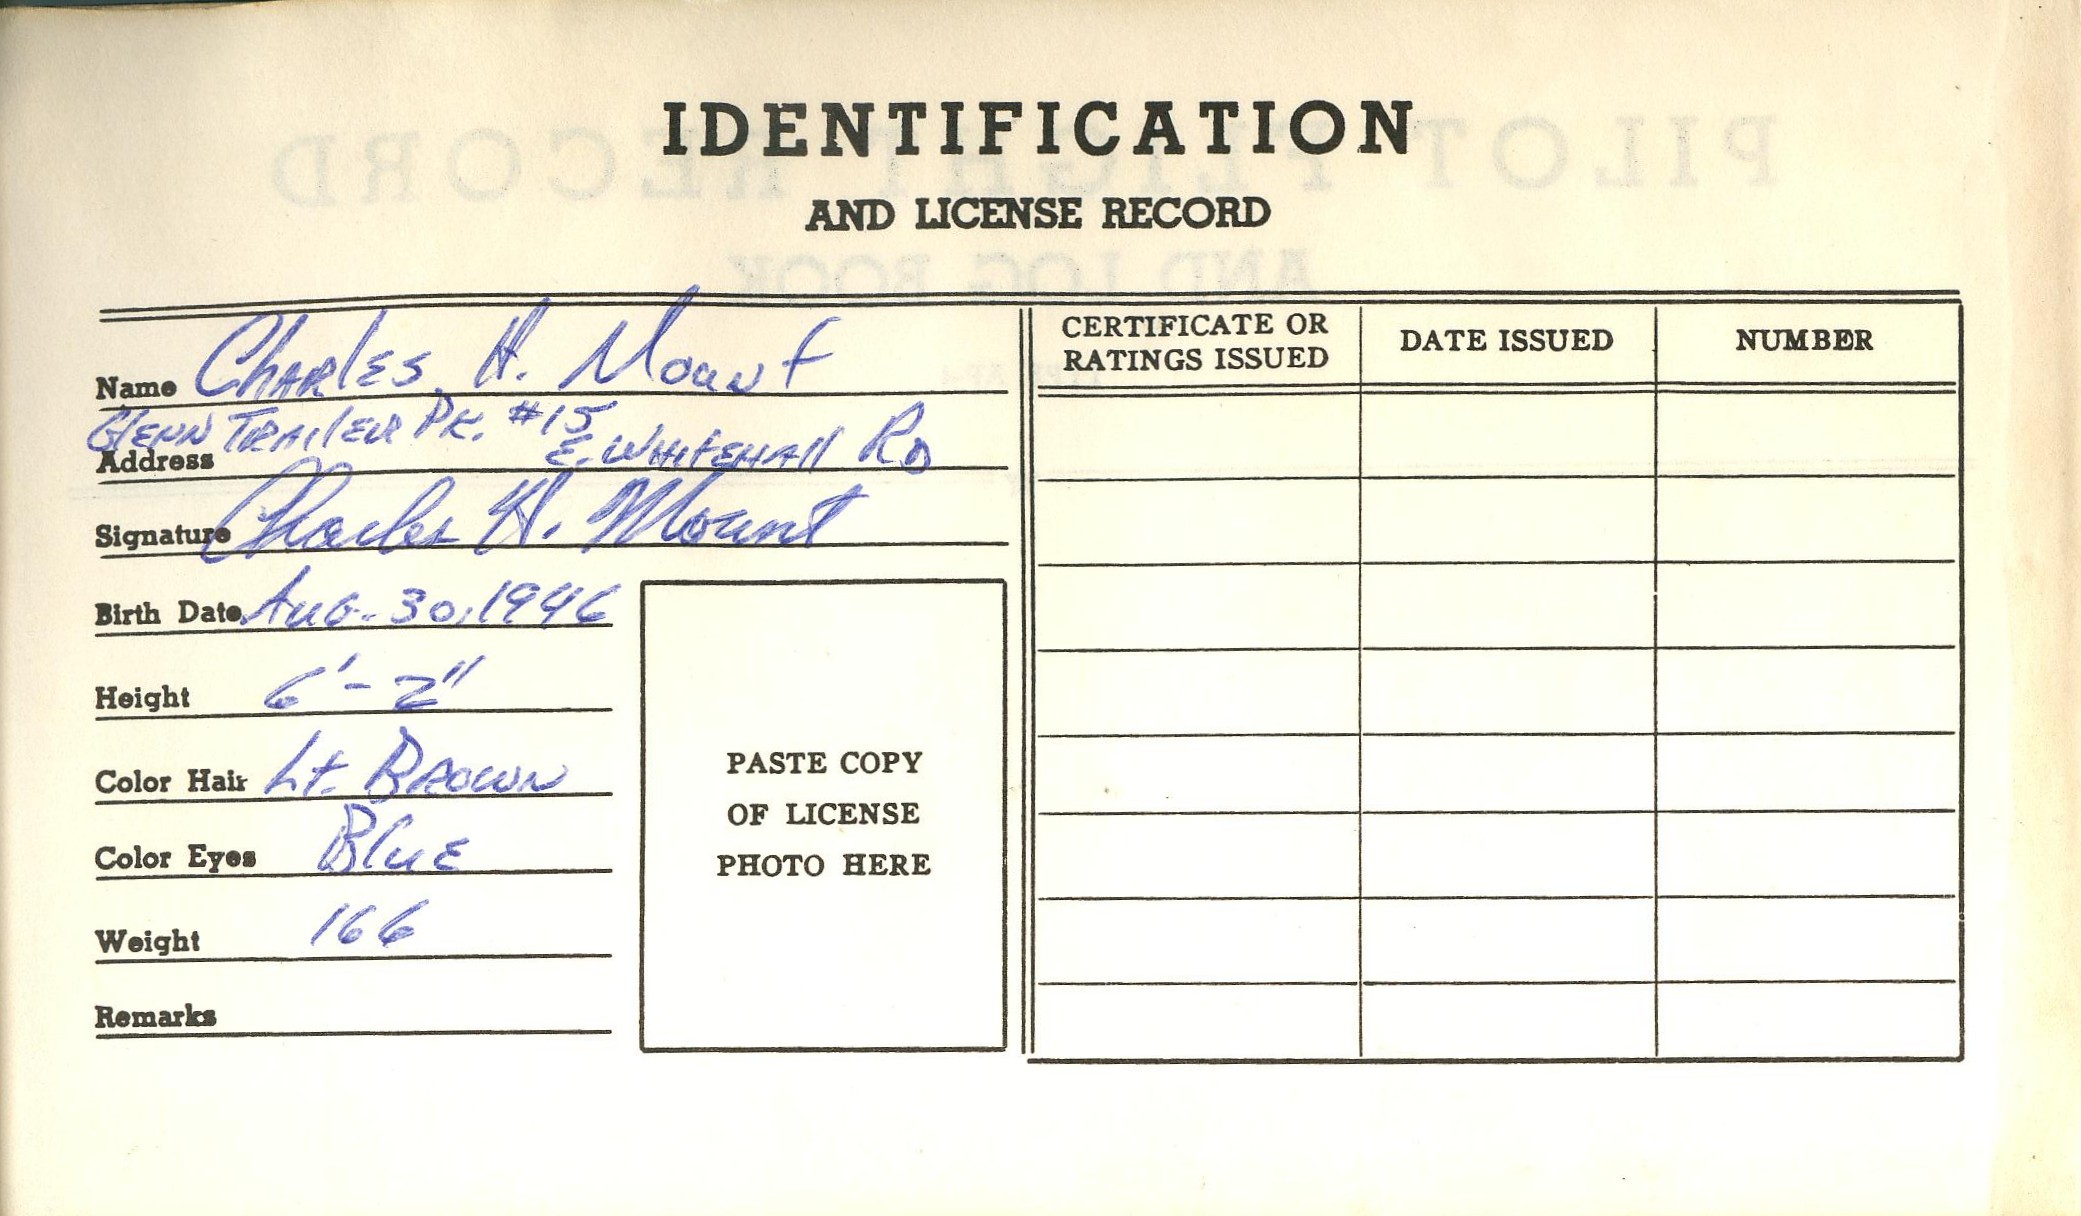 IDENTIFICATION
AND LICENSE RECORD
Name Charles H. Mount
Glenn Trailer Pk. #15
Address E. Whitehall Rd
Signature Charles H. Mount
Birth Date Aug. 30, 1946
Height 6'-2"
Color Hair Lt. Brown
Color Eyes Blue
Weight 166
Remarks
PASTE COPY
OF LICENSE
PHOTO HERE
CERTIFICATE OR
RATINGS ISSUED
DATE ISSUED
NUMBER
PILOT FLIGHT RECORD
AND LOG BOOK